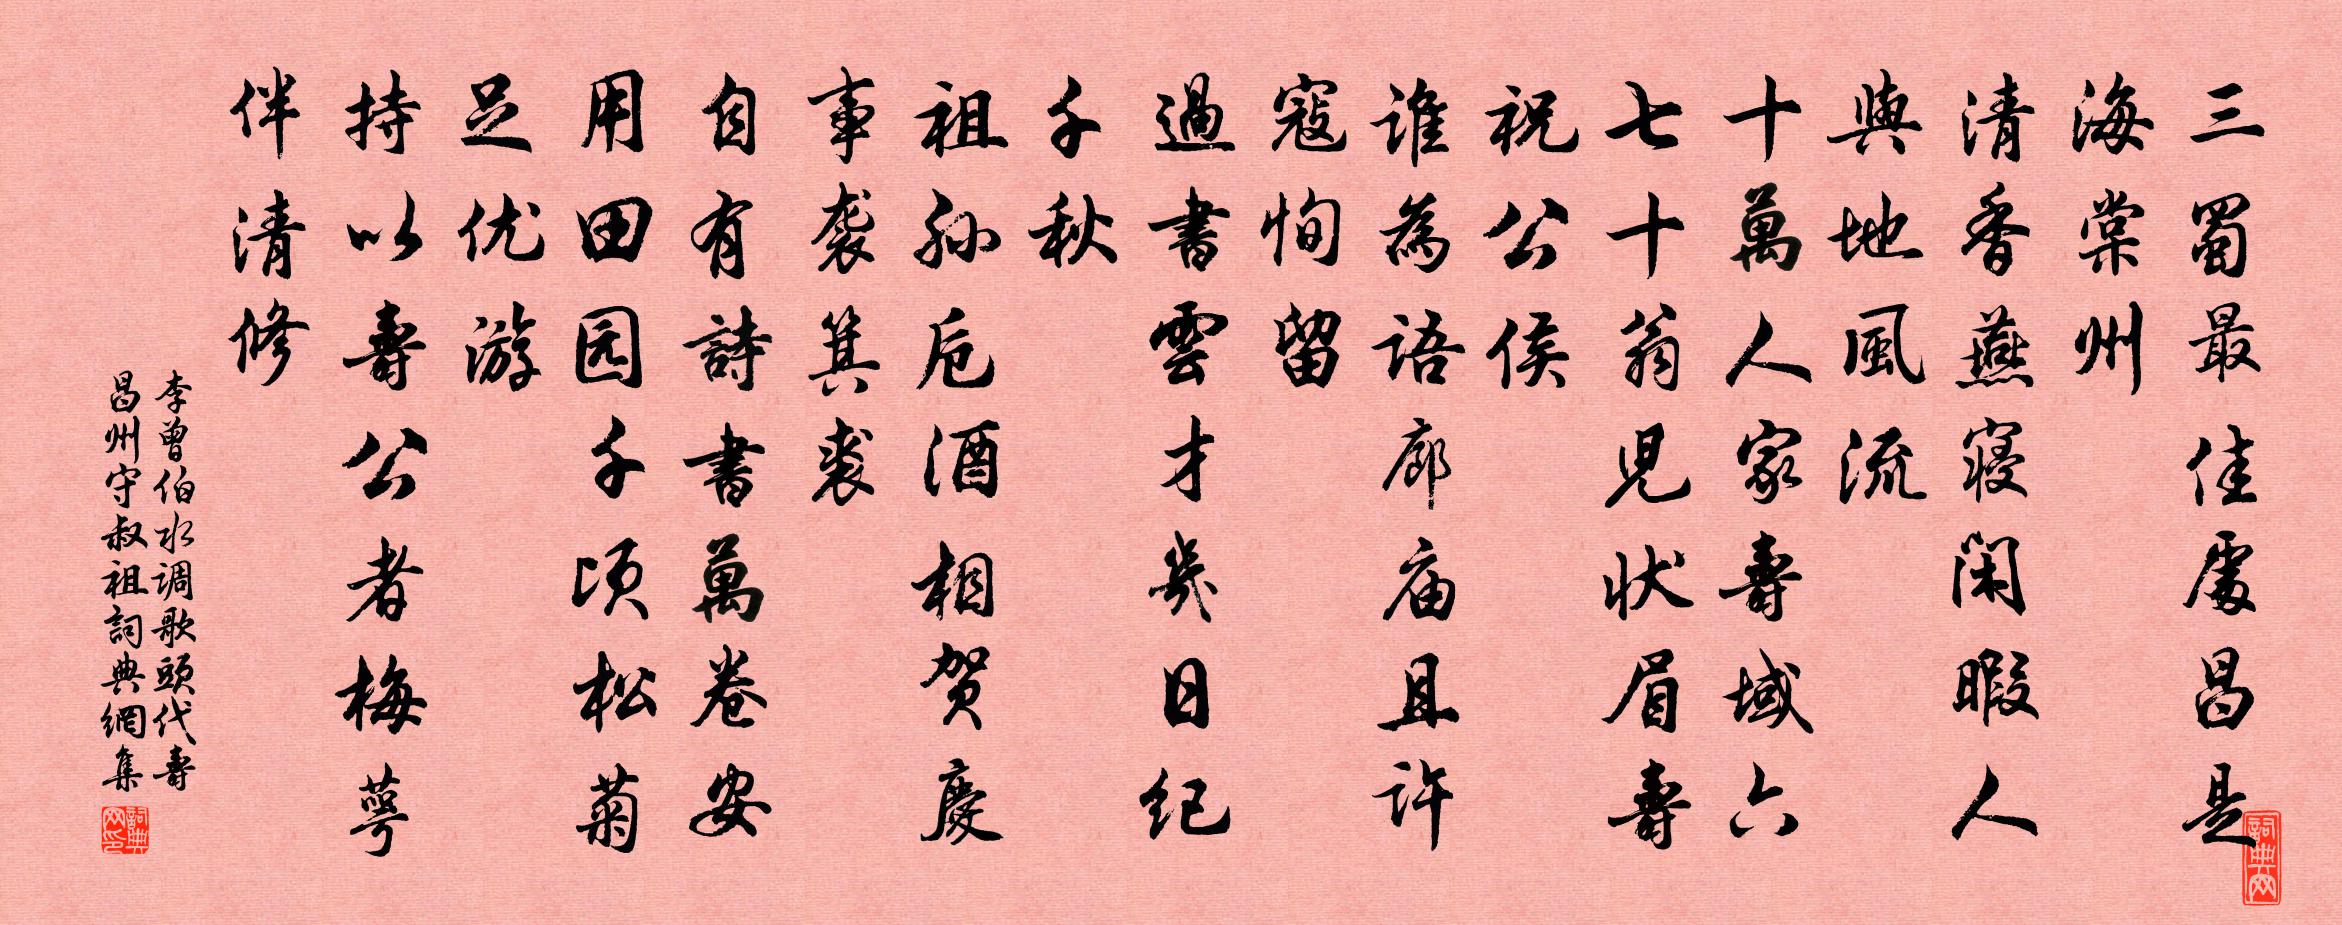 三蜀最佳處昌是
海棠州
清香燕寝闲暇人
與地風流
十萬人家壽域六
七十翁児状眉壽
祝公侯
谁為语廊庙且许
寇恂留
過書雲才幾日纪
千秋
祖孙卮酒相贺慶
事袭箕裘
自有詩書萬卷安
用田园千顷松菊
足优游
持以壽公者梅萼
伴清修
李曾伯水调歌頭代壽
昌州守叔祖詞典網集
詞典网
詞典网印